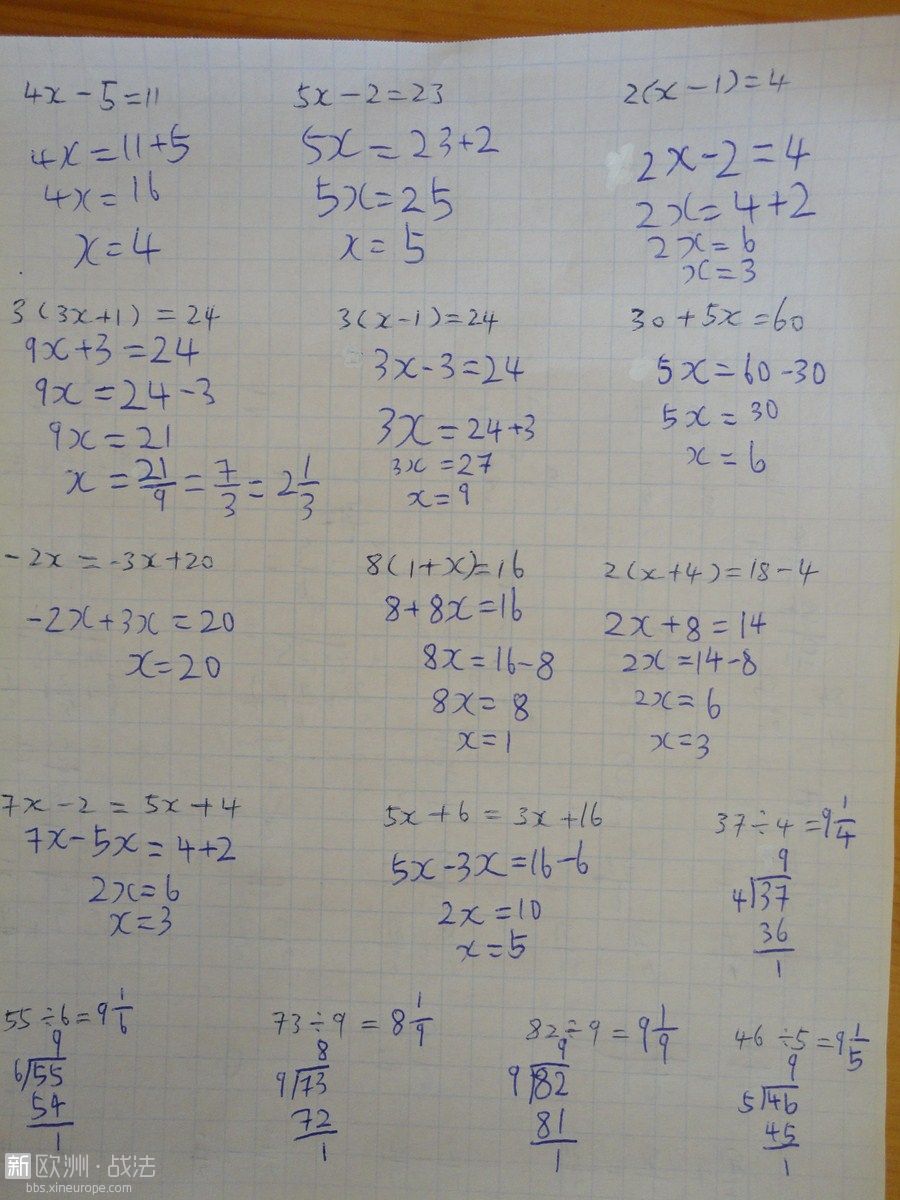 4x - 5 = 11
4x = 11+5
4x = 16
x = 4
5x - 2 = 23
5x = 23+2
5x = 25
x = 5
2(x - 1) = 4
2x - 2 = 4
2x = 4+2
2x = 6
x = 3
3(3x+1) = 24
9x+3 = 24
9x = 24-3
9x = 21
x = 21/9 = 7/3 = 2 1/3
3(x-1) = 24
3x-3 = 24
3x = 24+3
3x = 27
x = 9
30+5x = 60
5x = 60-30
5x = 30
x = 6
-2x = -3x+20
-2x+3x = 20
x = 20
8(1+x) = 16
8+8x = 16
8x = 16-8
8x = 8
x = 1
2(x+4) = 18-4
2x+8 = 14
2x = 14-8
2x = 6
x = 3
7x-2 = 5x+4
7x-5x = 4+2
2x = 6
x = 3
5x+6 = 3x+16
5x-3x = 16-6
2x = 10
x = 5
37÷4 = 9 1/4
9
4)37
36
1
55÷6 = 9 1/6
9
6)55
54
1
73÷9 = 8 1/9
8
9)73
72
1
82÷9 = 9 1/9
9
9)82
81
1
46÷5 = 9 1/5
9
5)46
45
1
新欧洲·战法
bbs.xineurope.com